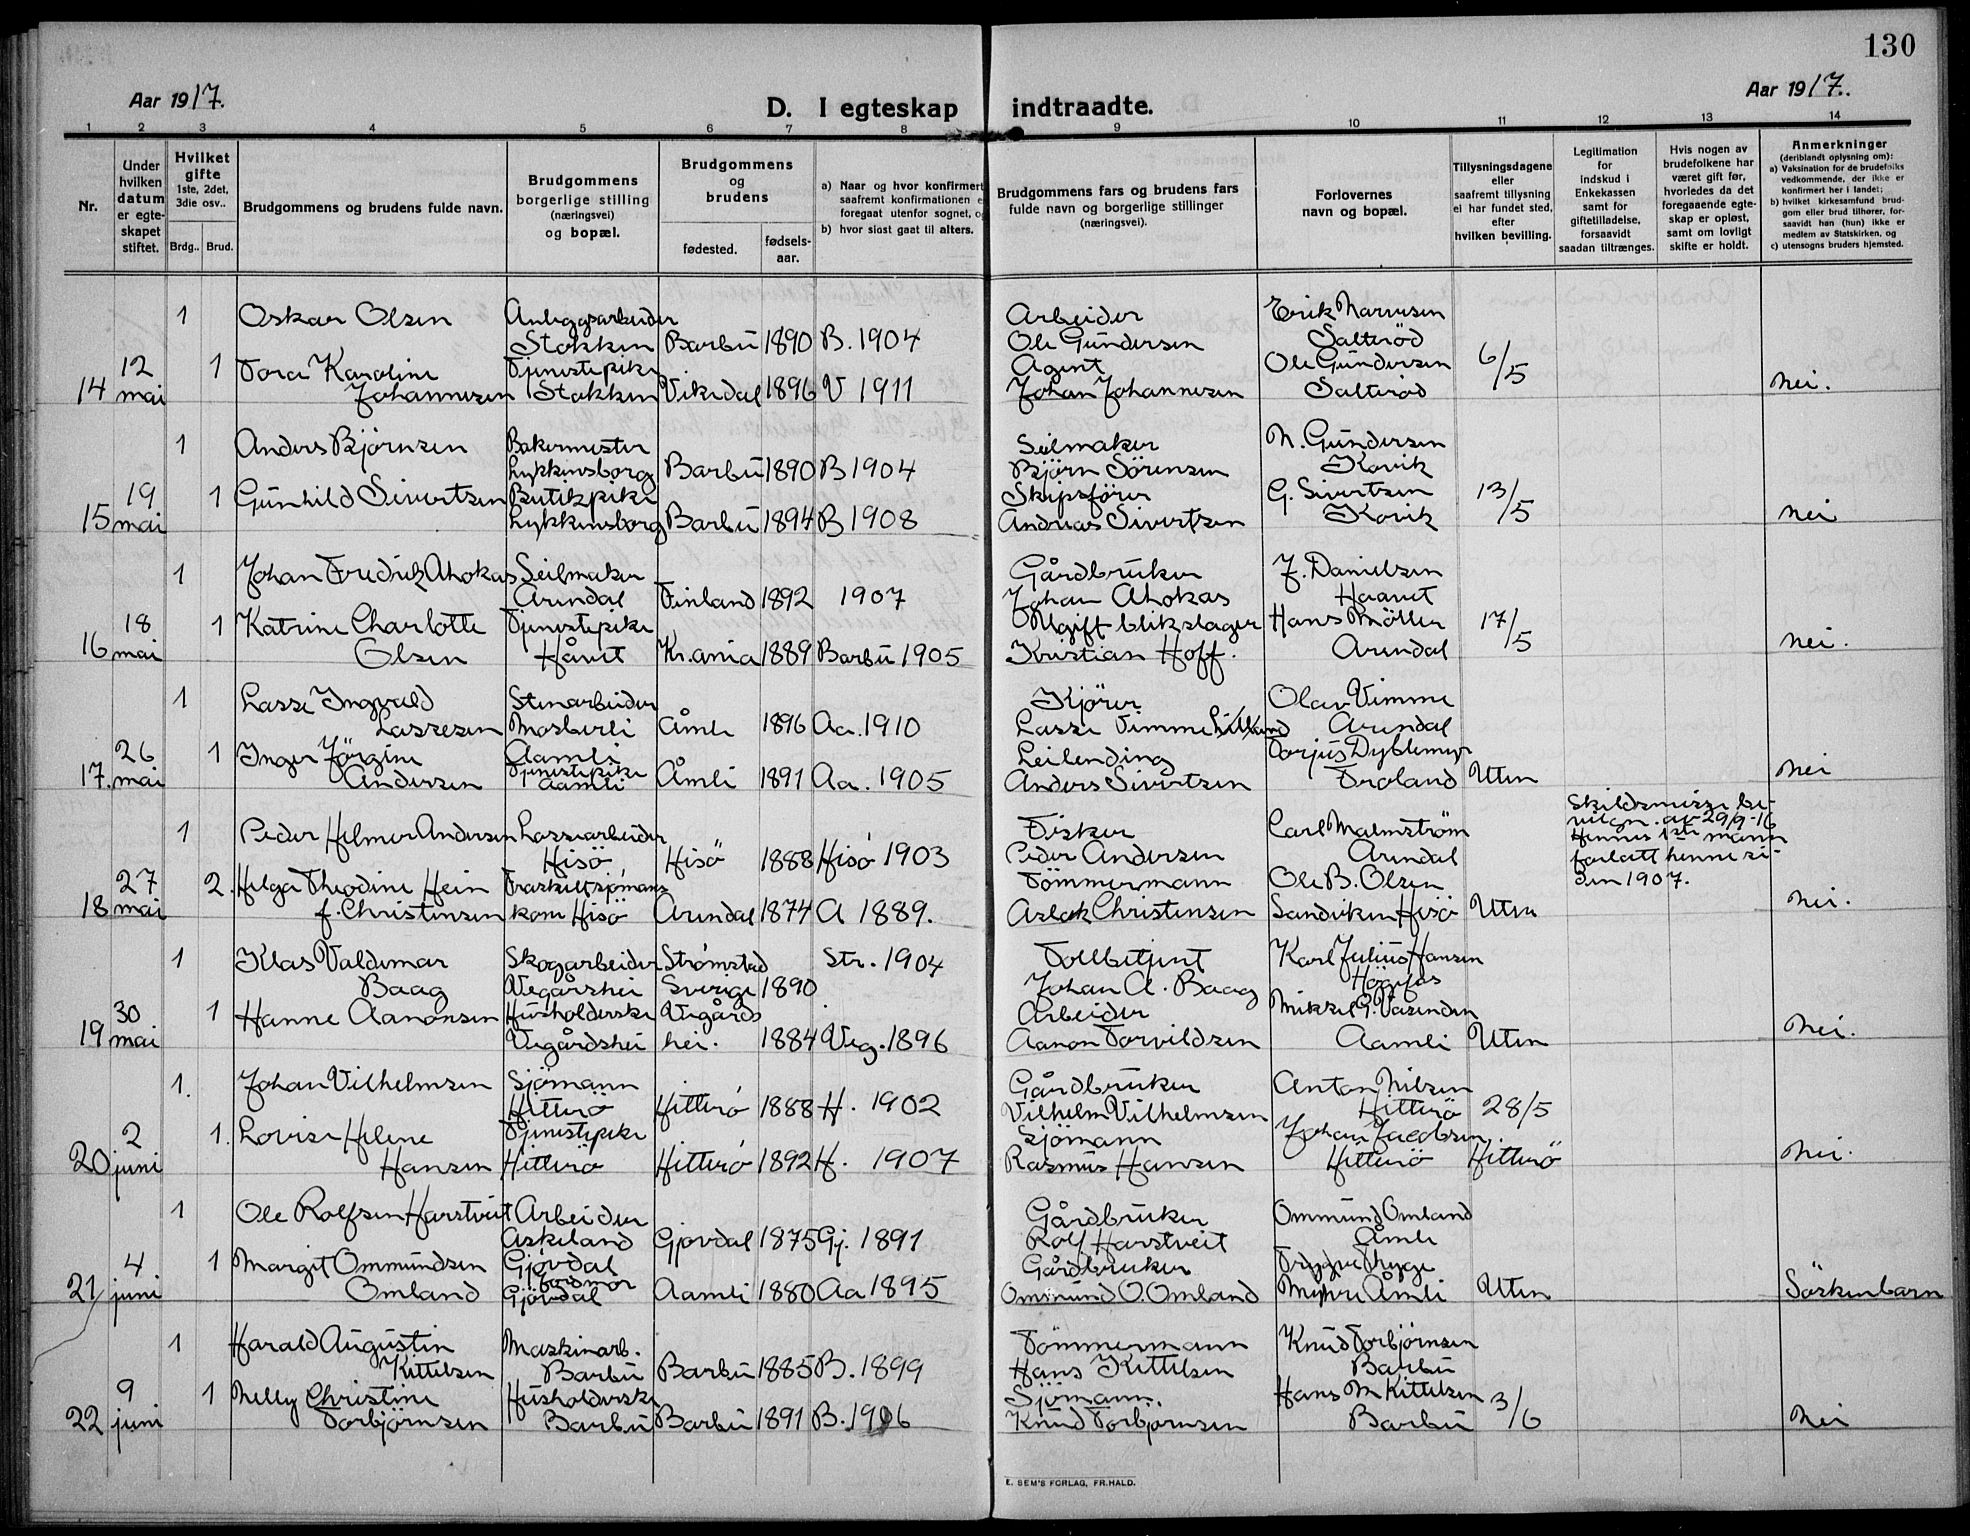 130
Aar 1917.
D. I egteskap indtraadte.
Aar 1917.
1 2 3 4 5 6 7 8 9 10 11 12 13 14
Nr.
Under hvilken datum er egteskapet stiftet.
Hvilket gifte 1ste, 2det, 3die osv..
Brdg.. Brud.
Brudgommens og brudens fulde navn.
Brudgommens borgerlige stilling (næringsvei) og bopæl.
Brudgommens og brudens
fødested. fødselsaar.
a) Naar og hvor konfirmert
saafremt konfirmationen e
foregaat utenfor sognet, og
b) hvor sisst gaat til alters.
Brudgommens fars og brudens fars fulde navn og borgerlige stillinger (næringsvei).
Forlovernes navn og bopæl.
Tillysningsdagene eller saafremt tillysning ei har fundet sted, efter hvilken bevilling.
Legitimation for indskud i Enkekassen samt for giftetilladelse, forsaavidt saadan tiltrænges.
Hvis nogen av brudefolkene har været gift før, hvorledes da det foregaaende egteskap er opløst, samt om lovligt skifte er holdt.
Anmerkninger
(deriblandt oplysning om):
a) Vaksination for de brudefolks vedkommende, der ikke er konfirmert her i landet;
b) hvilket kirkesamfund brudgom eller brud tilhører, forsaavidt han (hun) ikke er medlem av Statskirken, og
c) utensogns bruders hjemsted.
1 Oskar Olsen Anleggsarbeider Arbeider Erik Marcusen
Stokken Barbu 1890 B. 1904 Ole Gundersen Salteröd
12 1 Tora Karoline Tjenestepike Agent Ole Gundersen 6/5
14 mai Johannesen Stokken Vikedal 1896 V 1911 Johan Johannesen Salteröd nei.
1 Anders Björnsen Bakermester Seilmaker N. Gundersen
Lykkensborg Barbu 1890 B 1904 Björn Sörensen Kovik
19 1 Gunhild Sivertsen Butikpike Skipsförer G. Sivertsen 13/5
15 mai Lykkensborg Barbu 1894 B 1908 Andreas Sivertsen Kovik nei
1 Johan Fredrik Ahokas Seilmaker Gårdbruker J. Danielsen
Arendal Finland 1892 1907 Johan Ahokas Haavet
18 1 Katrine Charlotte Tjenestepike Ugift blikslager Hans Möller 17/5
16 mai Olsen Håvet Kr.ania 1889 Barbu 1905 Kristian Hoff. Arendal nei.
1 Lasse Ingvald Stenarbeider Kjörer Olav Vimme
Lassesen Mosberli Åmli 1896 Aa. 1910 Lasse Vimme Arendal
26 1 Inger Jörgine Aamli Leilending Torjus Dyblemyr
17. mai Andersen Tjenestepike Aamli Åmli 1891 Aa. 1905 Anders Sivertsen Froland Uten nei
1 Peder Helmer Andersen Lossearbeider Fisker Carl Malmström
Hisö Hisö 1888 Hisö 1903 Peder Andersen Arendal
Skildsmisse be-
vilgn. av 29/9-16
Hennes 1ste mann
forlatt henne si-
den 1907.
27 2. Helga Theodine Hein Fraskilt sjömans Tömmermann Ole B. Olsen
18 mai f. Christensen kone Hisö Arendal 1874 A 1889. Aslak Christensen Sandviken Hisö Uten nei.
1 Klas Valdemar Skogarbeider Strömstad Str. 1904 Tollbetjent Karl Julius Hansen
Baag Vegårshei Sverige 1890 Johan A. Baag Högefos
30 1 Hanne Aanonsen Husholderske Vegårds Arbeider Mikkel G. Vasenden
19 mai Vegårdshei hei. 1884 Veg. 1896 Aanon Torvildsen Aamli Uten nei.
1. Johan Vilhelmsen Sjömann Gårdbruker Anton Nilsen
Hitterö Hitterö 1888 H. 1902 Vilhelm Vilhelmsen Hitterö 28/5
2 1. Lovise Helene Tjenestepike Sjömann Johan Jacobsen.
20 juni Hansen Hitterö Hitterö 1892 H. 1907 Rasmus Hansen Hitterö Hitterö nei.
1 Ole Rolfsen Harstveit Arbeider Gårdbruker Ommund Omland
Askeland Gjövdal 1875 Gj. 1891 Rolf Harstveit Åmli
4 1 Margit Ommundsen Gjövdal Gårdbruker Trygve Thyge
21 juni Omland Jordmor Gjövdal Aamli 1880 Aa 1895 Ommund O. Omland Myhre Åmli Uten Söskenbarn
1 Harald Augustin Maskinarb. Tömmermann Knud Torbjörnsen
Kittelsen Barbu Barbu 1885 B. 1899 Hans Kittelsen Barbu
9 1 Nelly Christine Husholderske Sjömann. Hans M Kittelsen 3/6
22 juni Torbjörnsen Barbu Barbu 1891 B. 1906 Knud Torbjörnsen Barbu nei
E. SEM'S FORLAG, FR.HALD.